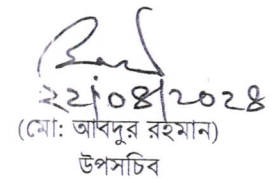 ২২/০৪/২০২৪
(মো: আবদুর রহমান)
উপসচিব